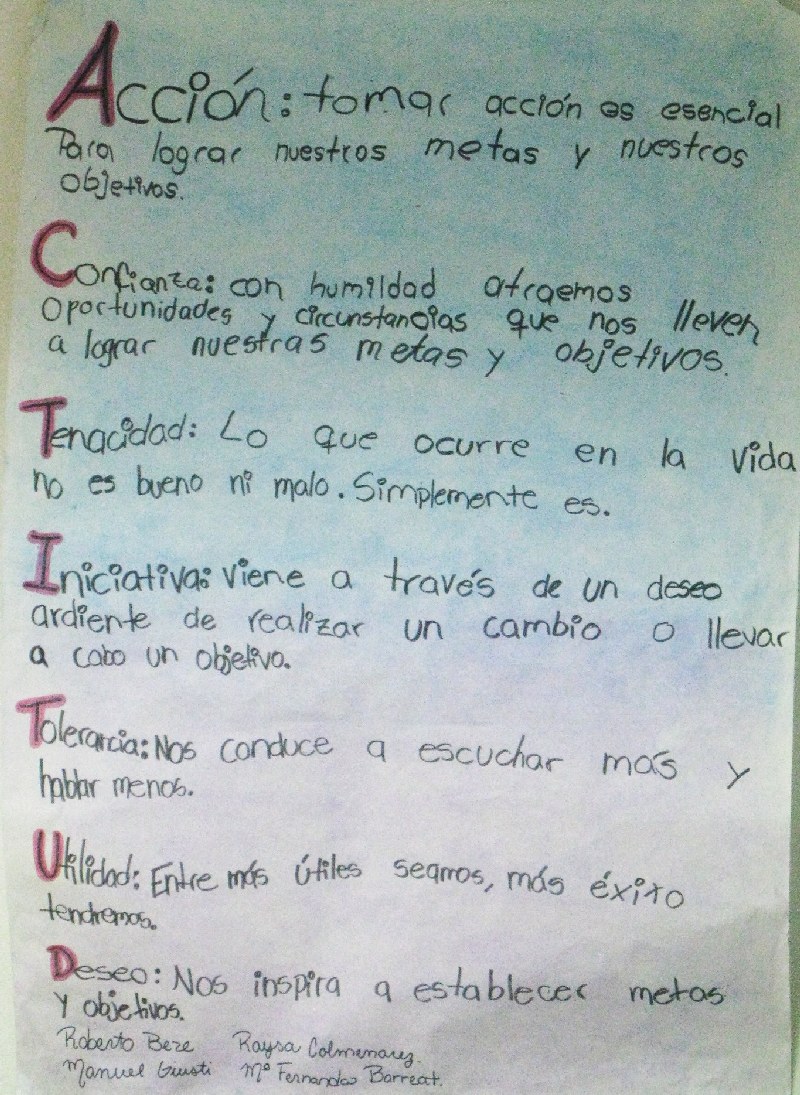 Acción: tomar acción es esencial
Para lograr nuestros metas y nuestros
objetivos.
Confianza: con humildad atraemos
oportunidades y circunstancias que nos lleven
a lograr nuestras metas y objetivos.
Tenacidad: Lo que ocurre en la vida
no es bueno ni malo. Simplemente es.
Iniciativa: Viene a través de un deseo
ardiente de realizar un cambio o llevar
a cabo un objetivo.
Tolerancia: Nos conduce a escuchar más y
hablar menos.
Utilidad: Entre más útiles seamos, más éxito
tendremos.
Deseo: Nos inspira a establecer metas
y objetivos.
Roberto Beze Raysa Colmenarez.
Manuel Giusti Mª Fernanda Barreat.